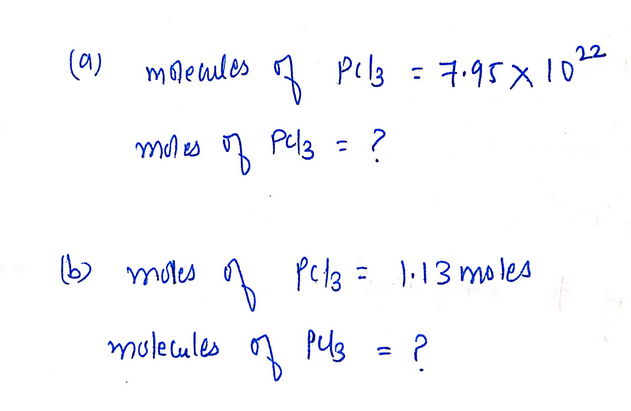 (a) molecules of PCl3 = 7.95 × 10^22
moles of PCl3 = ?
(b) moles of PCl3 = 1.13 moles
molecules of PCl3 = ?